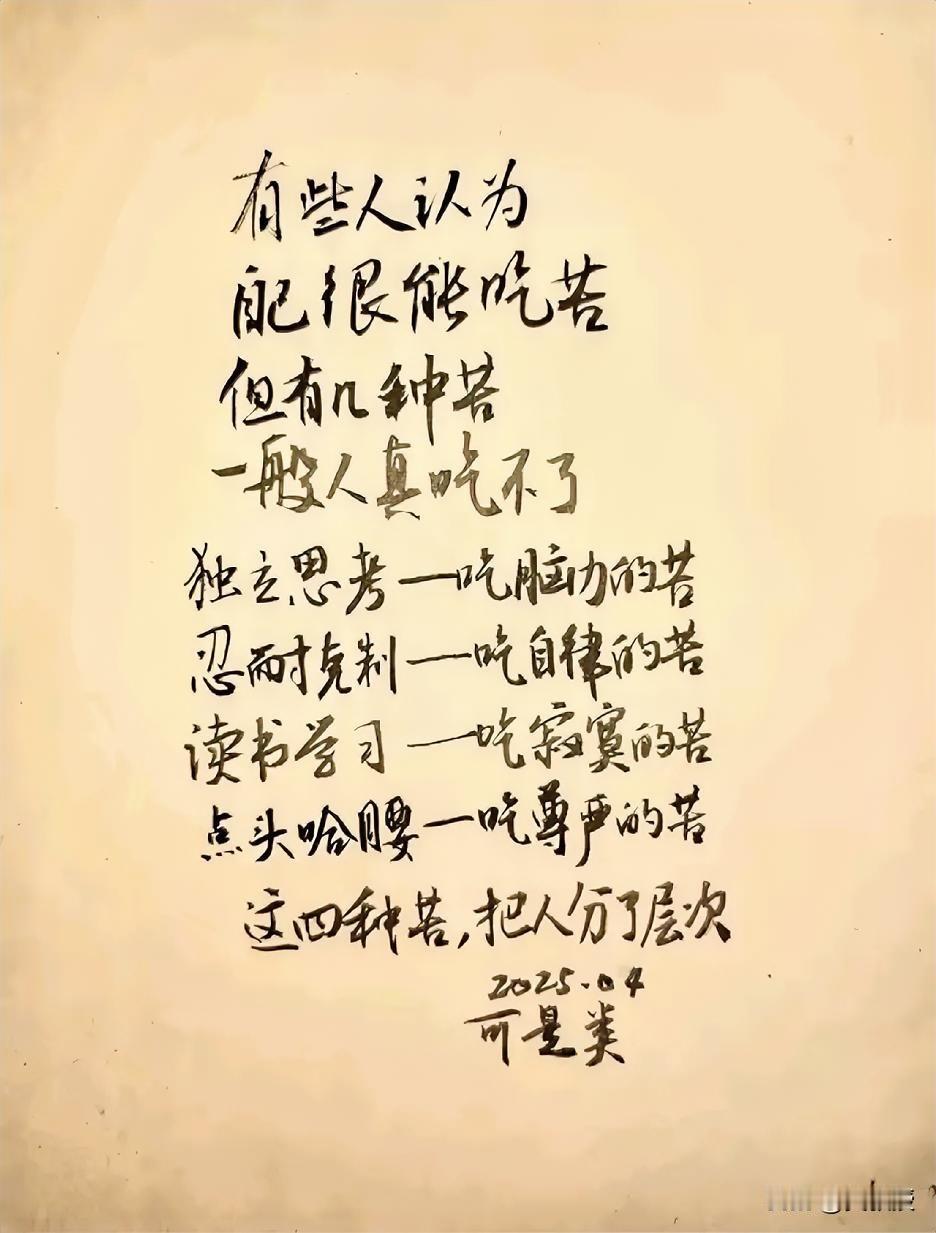 有些人认为
自己很能吃苦
但有几种苦
一般人真吃不了
独立思考一吃脑力的苦
忍耐克制一吃自律的苦
读书学习一吃寂寞的苦
点头哈腰一吃尊严的苦
这四种苦,把人分了层次
2025.04
可是类